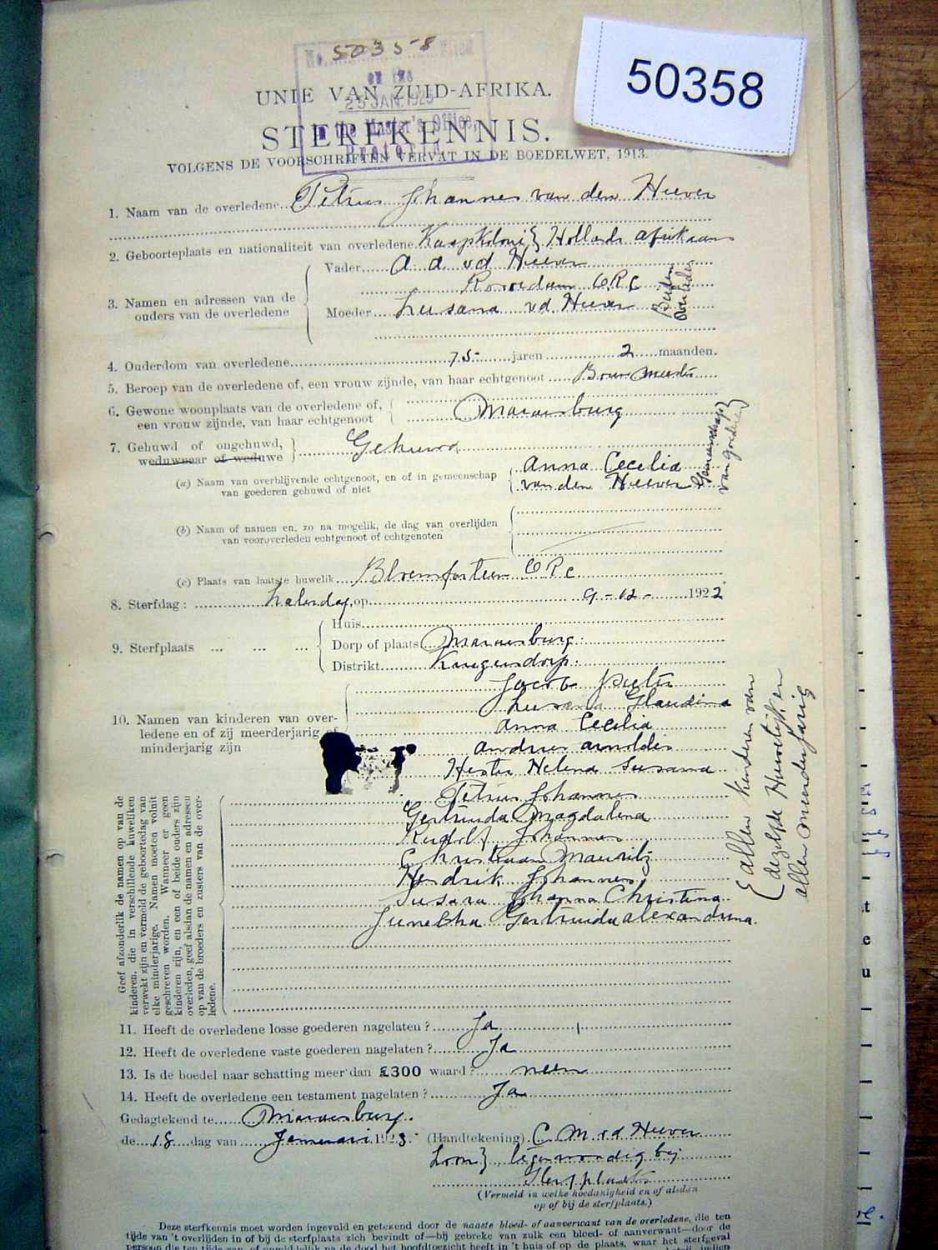 50358
No. 50358 Filed
on the
25 JAN. 1923
in the Master's Office,
Pretoria
UNIE VAN ZUID-AFRIKA.
STERFKENNIS.
VOLGENS DE VOORSCHRIFTEN VERVAT IN DE BOEDELWET, 1913.
1. Naam van de overledene Petrus Johannes van den Heever
2. Geboorteplaats en nationaliteit van overledene Kaapkolonie } Hollands afrikaans
3. Namen en adressen van de ouders van de overledene
Vader A. A. vd Heever
ORC
Moeder Susana vd Heever
Beiden Overleden
4. Ouderdom van overledene 75 jaren 2 maanden.
5. Beroep van de overledene of, een vrouw zijnde, van haar echtgenoot Bouwmeester
6. Gewone woonplaats van de overledene of, een vrouw zijnde, van haar echtgenoot Maraisburg
7. Gehuwd of ongehuwd, weduwnaar of weduwe } Gehuwd
(a) Naam van overblijvende echtgenoot, en of in gemeenschap van goederen gehuwd of niet
Anna Cecelia
van den Heever
Gemeenschap van goederen }
(b) Naam of namen en, zo na mogelik, de dag van overlijden van vooroverleden echtgenoot of echtgenoten
(c) Plaats van laatste huwelik Bloemfontein ORC
8. Sterfdag : Saterdag op 9-12- 1922
9. Sterfplaats ... ... ...
Huis
Dorp of plaats Maraisburg.
Distrikt Krugersdorp.
10. Namen van kinderen van overledene en of zij meerderjarig of minderjarig zijn
Jacob Pieter
Susana Glaudina
Anna Cecelia
Andries Arnoldus
Hester Helena Susana
Petrus Johannes
Gertruida Magdalena
Rudolf Johannes
Christiaan Mauritz
Hendrik Johannes
Susara Johanna Christina
Gertruida Alexandrina.
{ allen kinderen van
dezelfde Huwelijk en
allen meerderjarig
Geef afzonderlik de namen op van de
kinderen, die in verschillende huweliken
verwekt zijn en vermeld de geboortedag van
elke minderjarige. Namen moeten voluit
geschreven worden. Wanneer er geen
kinderen zijn, en een of beide ouders zijn
overleden, geef alsdan de namen en adressen
op van de broeders en zusters van de over-
ledene.
11. Heeft de overledene losse goederen nagelaten ? Ja
12. Heeft de overledene vaste goederen nagelaten ? Ja
13. Is de boedel naar schatting meer dan £300 waard ? neen
14. Heeft de overledene een testament nagelaten ? Ja
Gedagtekend te Maraisburg.
de 18 dag van Januari 1923. (Handtekening) C M vd Heever
Zoon } tegenwoordig bij
Sterfplaats
(Vermeld in welke hoedanigheid en of alsdan
op of bij de sterfplaats.)
Deze sterfkennis moet worden ingevuld en getekend door de naaste bloed- of aanverwant van de overledene, die ten
tijde van 't overlijden in of bij de sterfplaats zich bevindt of—bij gebreke van zulk een bloed- of aanverwant—door de